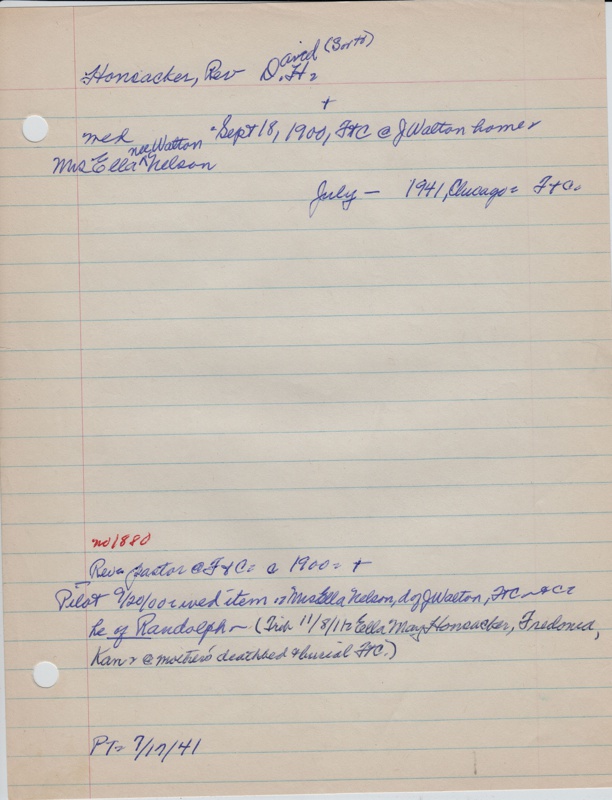 Honsacker, Rev David (3 orts)
D. H.
+
med Sept 18, 1900, F+C @ J Walton home
Mrs Ella ^ nee Walton Nelson
July — 1941, Chicago = F+C.
no 1880
Rev pastor @ F+C. c 1900 = +
Pilot 9/20/00 = wed item = "Mrs Ella Nelson, d of J Walton, F+C
he of Randolph ~ (Trib 11/8/11 = Ella May Honsacker, Fredonia,
Kan @ mother's deathbed + burial F+C.)
PT = 7/17/41